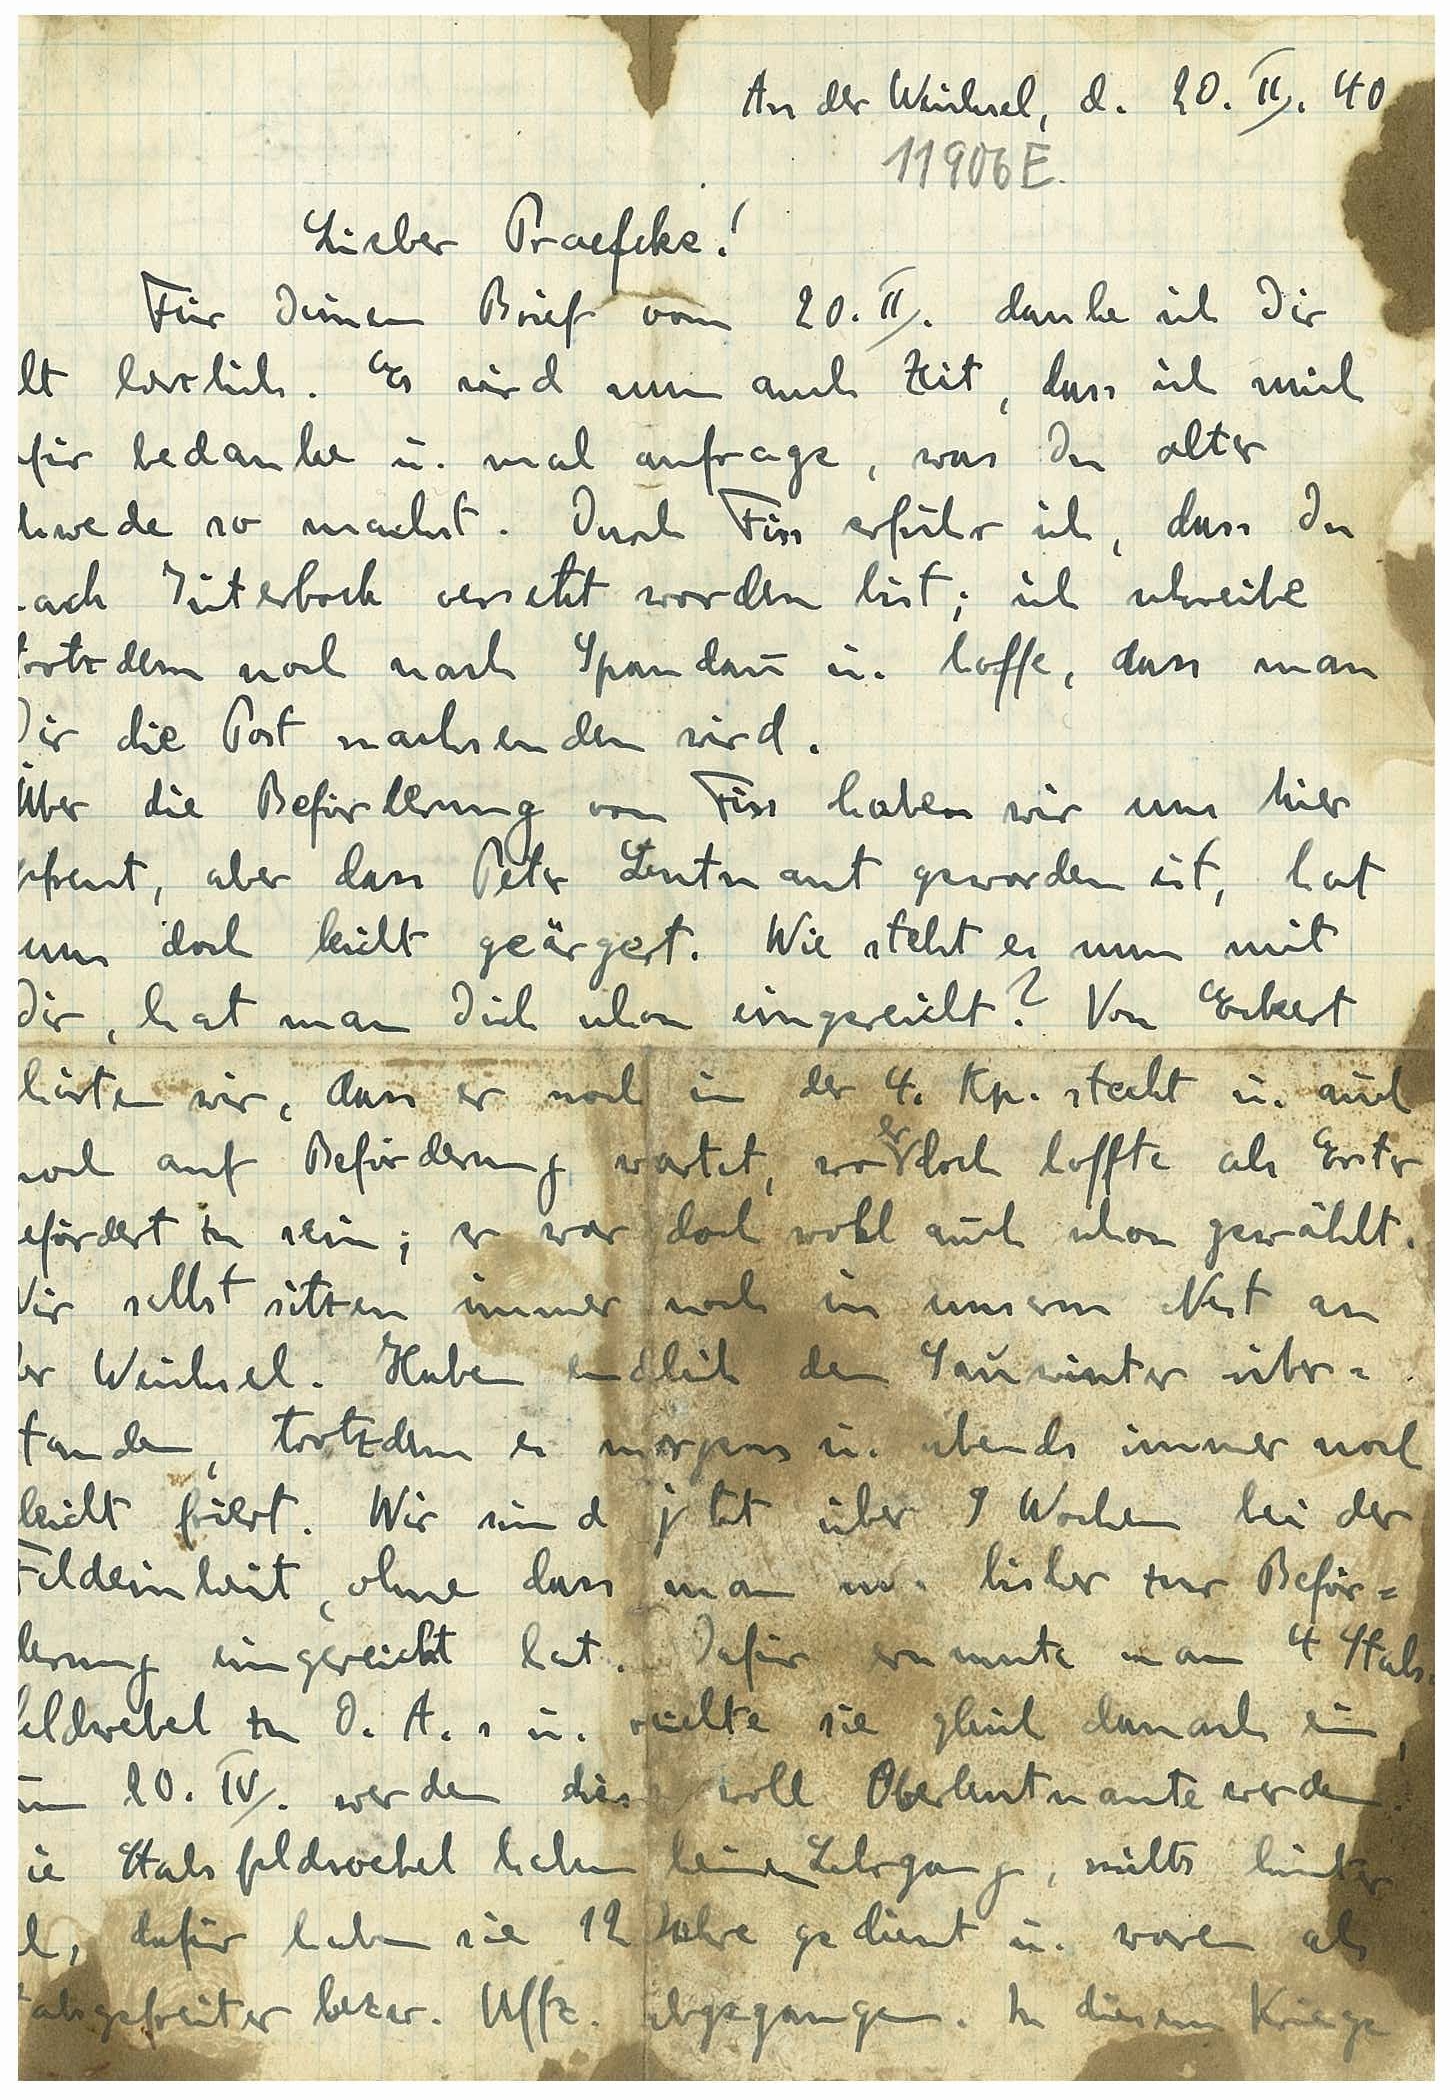 An der Weichsel, d. 20. II. 40
11906E.
Lieber Praefcke!
Für Deinen Brief vom 20. II. danke ich Dir
lt herzlich. Es wird nun auch Zeit, dass ich mich
für bedanke u. mal anfrage, was Du alter
hwede so machst. Durch Fiss erfuhr ich, dass Du
ach Jüterbock versetzt worden bist; ich schreibe
trotzdem noch nach Spandau u. hoffe, dass man
Dir die Post nachsenden wird.
Über die Beförderung von Fiss haben wir uns hier
efreut, aber dass Peter Leutnant geworden ist, hat
uns doch leicht geärgert. Wie steht es nun mit
Dir, hat man Dich schon eingereicht? Von Eckert
hörten wir, dass er noch in der 4. Kp. steckt u. auch
noch auf Beförderung wartet, wo er doch hoffte als Erster
efördert zu sein; er war doch wohl auch schon gewählt.
Wir selbst sitzen immer noch in unserm Nest an
er Weichsel. Haben endlich den Sauwinter über=
tanden, trotzdem es morgens u. abends immer noch
leicht friert. Wir sind jetzt über 9 Wochen bei der
Feldeinheit, ohne dass man uns bisher zur Beför=
derung eingereicht hat. Dafür ernannte man 4 Stabs-
feldwebel zu O. A. s u. reichte sie gleich danach ein,
um 20. IV. werden diese wohl Oberleutnante werden.
ie Stabsfeldwebel haben keinen Lehrgang, nichts hinter
, dafür haben sie 12 Jahre gedient u. waren als
tabsgefreiter bezw. Uffz. abgegangen. In diesem Kriege